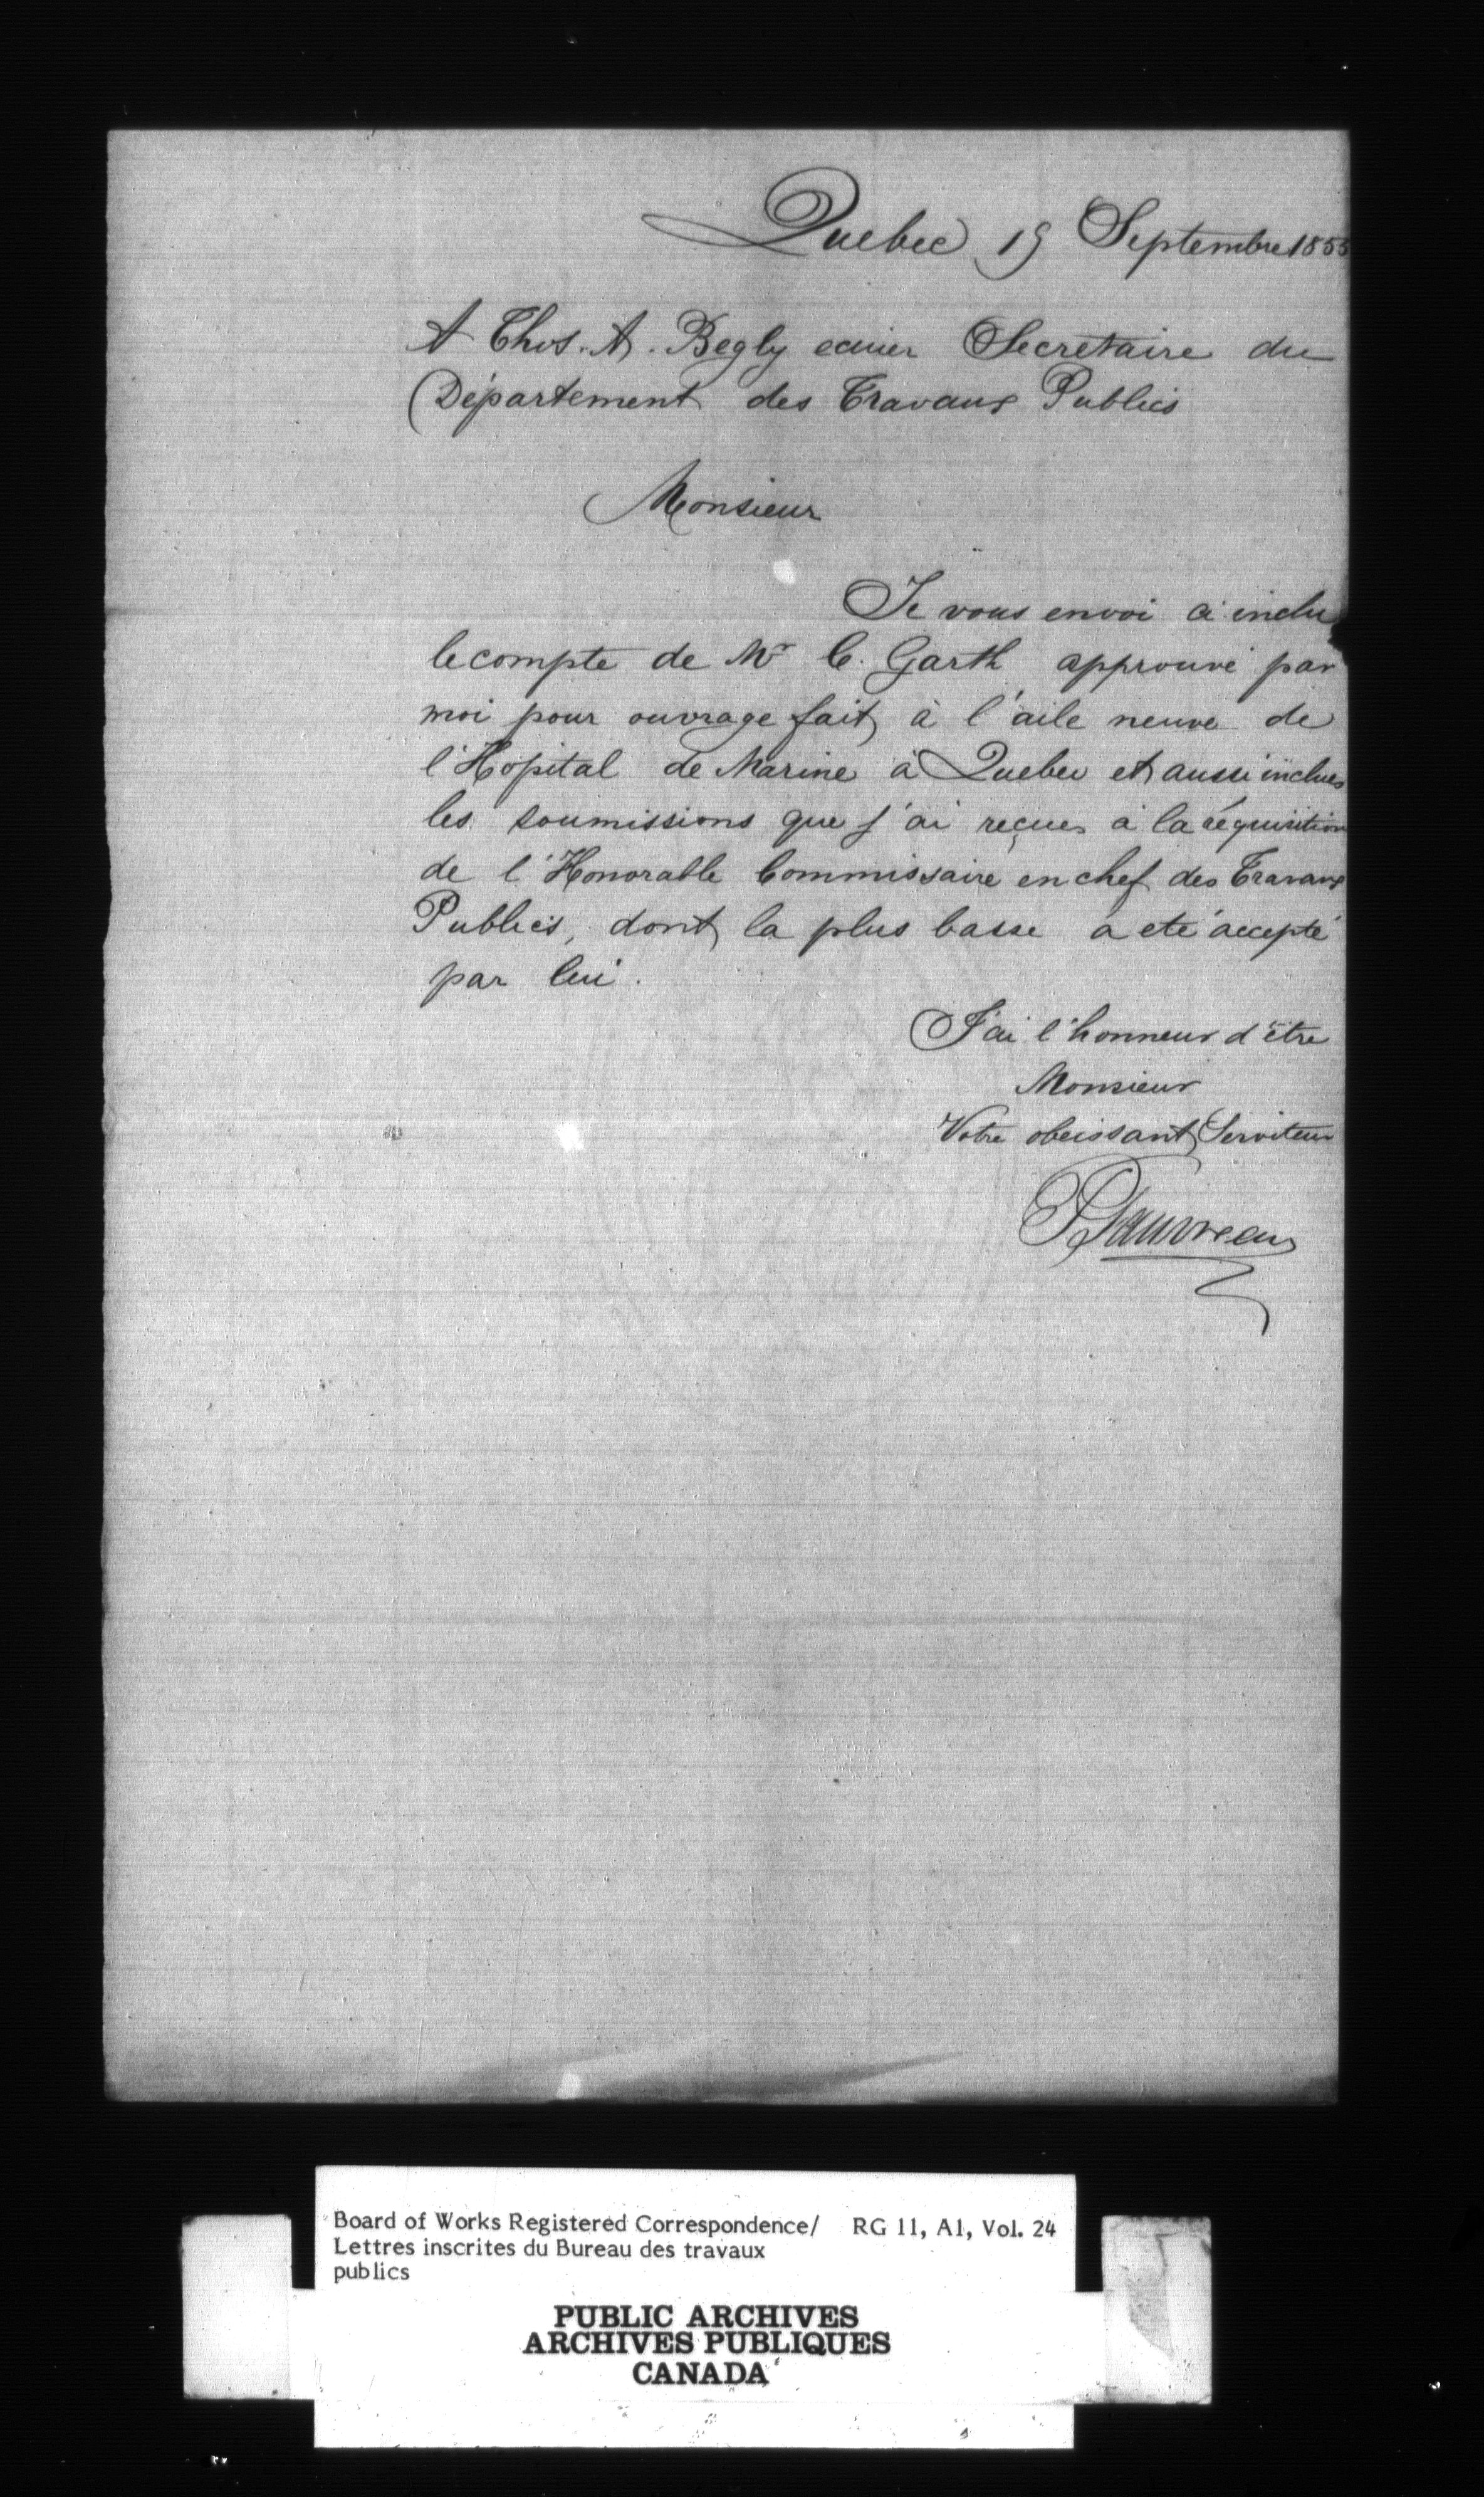 Quebec 19 Septembre 1855
A Thos. A. Begly ecuier Secretaire du
Département des Travaux Publics
Monsieur
Je vous envoi ci inclu
le compte de Mr C. Garth approuvé par
moi pour ouvrage fait à l'aile neuve de
l'Hôpital de Marine à Quebec et aussi inclues
les soumissions que j'ai reçues à la réquisition
de l'Honorable Commissaire en chef des Travaux
Publics, dont la plus basse a eté accepté
par lui.
J'ai l'honneur d'être
Monsieur
Votre obeissant Serviteur
P. Gauvreau
Board of Works Registered Correspondence/ RG 11, A1, Vol. 24
Lettres inscrites du Bureau des travaux
publics
PUBLIC ARCHIVES
ARCHIVES PUBLIQUES
CANADA